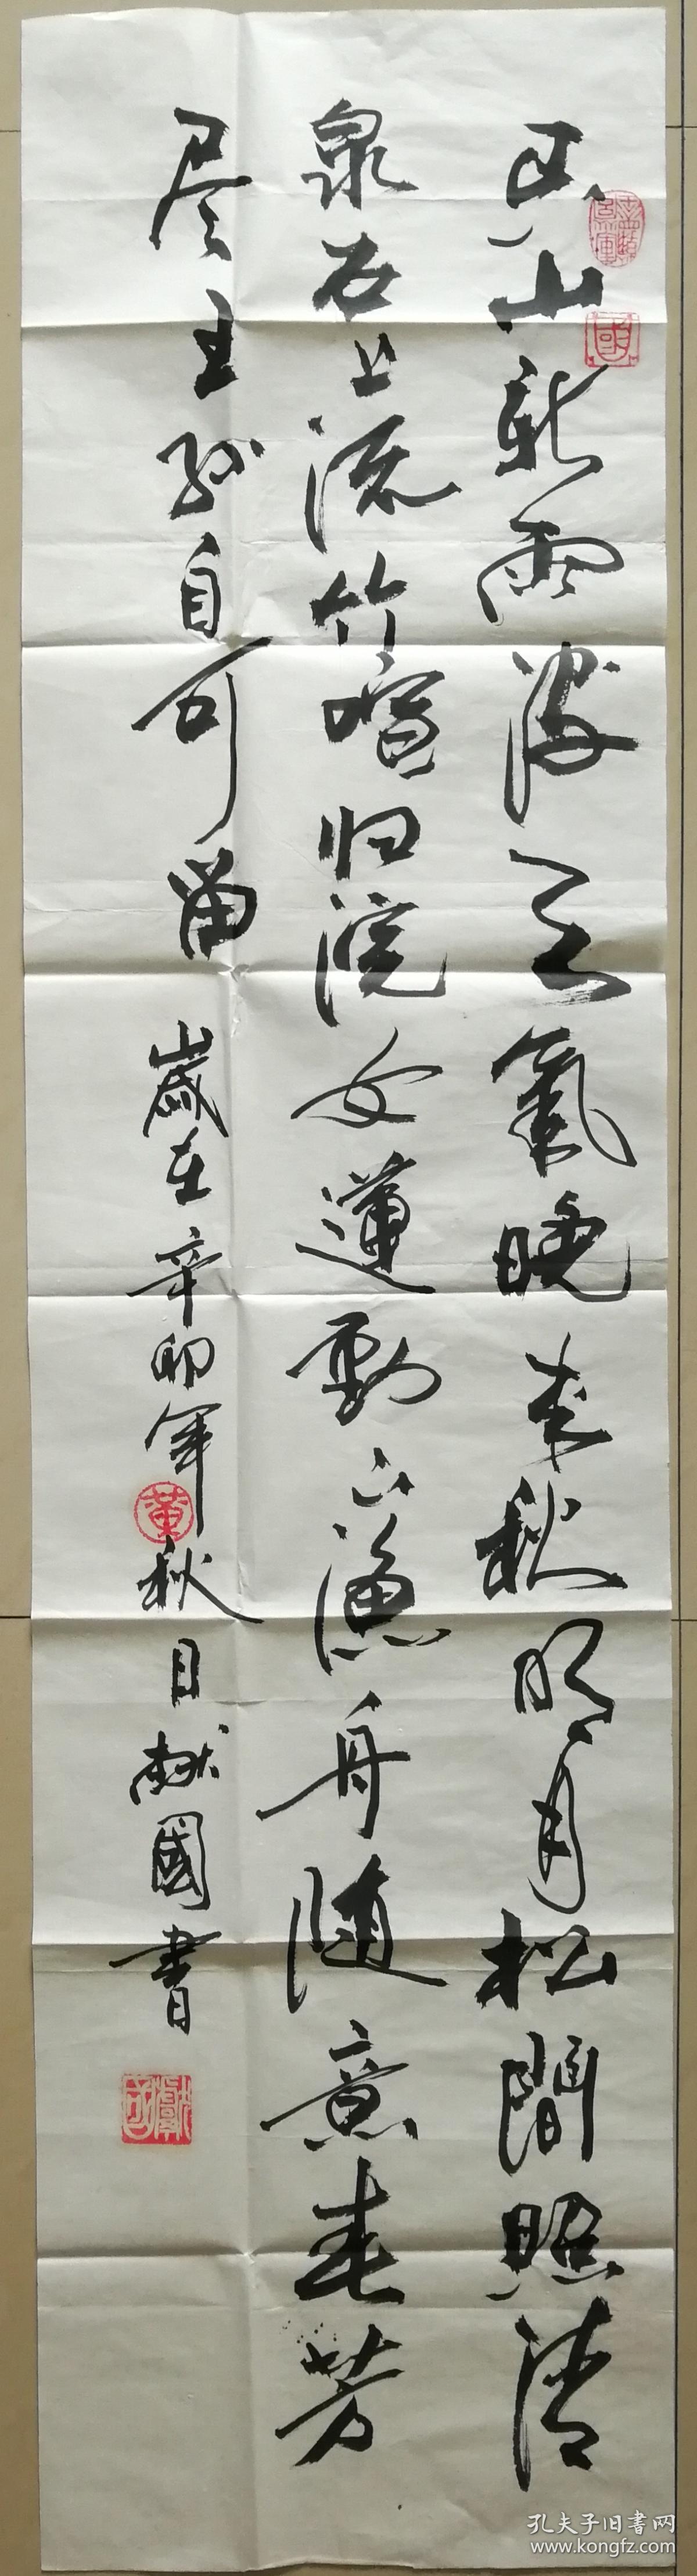 空山新雨後天氣晚来秋明月松間照清
泉石上流竹喧归浣女蓮動下漁舟随意春芳
尽王孙自可留 歲在辛卯年秋日献國書
黄
獻國
孔夫子旧書网
www.kongfz.com